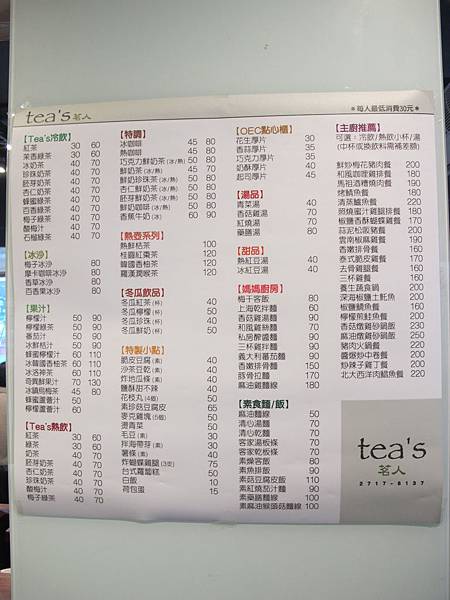 tea's 茗人
＊每人最低消費30元＊
【Tea's冷飲】
紅茶 30 60
茉香綠茶 30 60
冰奶茶 40 70
珍珠奶茶 40 70
胚芽奶茶 40 70
杏仁奶茶 40 70
蜂蜜綠茶 40 70
百香綠茶 40 70
梅子綠茶 40 70
酸梅汁 40 70
石榴綠茶 40 70
【冰沙】
梅子冰沙 80
摩卡咖啡冰沙 80
香草冰沙 80
百香果冰沙 80
【果汁】
檸檬汁 50 90
檸檬綠茶 50 90
番茄汁 50 90
冰鮮桔汁 50 90
蜂蜜檸檬汁 60 110
冰韓國香柚茶 60 110
冰洛神茶 60 110
奇異鮮果汁 70 130
冰鎮烏梅茶 45 80
蜂蜜蘆薈汁 60
檸檬蘆薈汁 60
【Tea's熱飲】
紅茶 30 60
綠茶 30 60
奶茶 40 70
胚芽奶茶 40 70
杏仁奶茶 40 70
珍珠奶茶 40 70
酸梅汁 40 70
梅子綠茶 40 70
【特調】
冰咖啡 45 80
熱咖啡 40
巧克力鮮奶茶(冰/熱) 50 80
鮮奶茶(冰/熱) 45 70
鮮奶珍珠茶(冰/熱) 50 80
杏仁鮮奶茶(冰/熱) 50 80
胚芽鮮奶茶(冰/熱) 50 80
鮮奶咖啡(冰/熱) 50 80
香蕉牛奶(冰) 60 90
【熱壺系列】
熱鮮桔茶 100
桂圓紅棗茶 120
韓國香柚茶 120
羅漢潤喉茶 120
【冬瓜飲品】
冬瓜紅茶(杯) 40
冬瓜檸檬(杯) 50
冬瓜珍珠(杯) 50
冬瓜鮮奶(杯) 50
【特製小點】
脆皮豆腐(素) 40
沙茶豆乾(素) 40
炸地瓜條(素) 40
鹽酥甜不辣 40
花枝丸(4個) 50
素珍菇豆腐皮 65
麥克雞塊(5個) 50
燙青菜 50
毛豆(素) 30
拌海帶芽(素) 30
薯條(素) 40
炸蝴蝶雞腿(3支) 75
台式蘿蔔糕 50
白飯 10
荷包蛋 15
【OEC點心櫃】
花生厚片 30
香蒜厚片 35
巧克力厚片 35
奶酥厚片 40
起司厚片 45
【湯品】
青菜湯 40
香菇雞湯 70
紅燒湯 70
藥膳湯 80
【甜品】
熱紅豆湯 40
冰紅豆湯 40
【媽媽廚房】
梅干客飯 80
上海乾拌麵 60
香菇雞湯麵 80
和風雞絲麵 70
私房醡醬麵 80
三杯雞拌麵 80
義大利蕃茄麵 80
香嫩排骨麵 150
豚骨拉麵 170
麻油雞麵線 180
【素食麵/飯】
麻油麵線 50
清心湯麵 70
清心乾麵 70
客家湯板條 70
客家乾板條 70
素燥客飯 80
素魚排飯 90
素菇豆腐皮飯 110
素紅燒茄汁麵 90
素藥膳麵線 100
素麻油猴頭菇麵線 100
【主廚推薦】
可選：冷飲/熱飲小杯/湯
(中杯或換飲料需補差額)
鮮炒梅花豬肉餐 200
和風咖哩雞排餐 180
馬祖酒糟燒肉餐 180
烤鯖魚餐 200
清蒸鱸魚餐 220
照燒蜜汁雞腿排餐 180
椒鹽香酥蝴蝶雞餐 170
蒜泥松阪豬餐 200
雲南椒麻雞餐 180
香嫩排骨餐 180
泰式脆皮雞餐 200
去骨雞腿餐 180
三杯雞餐 180
養生蔬食鍋 200
深海椒鹽土魠魚 200
椒鹽鯖魚餐 180
檸檬煎鮭魚餐 200
香菇燉雞砂鍋飯 230
麻油燉雞砂鍋飯 230
豬肉火鍋餐 220
醬爆炒中卷餐 200
炒辣子雞丁餐 200
北大西洋肉鯧魚餐 220
tea's
茗人
2717-8137